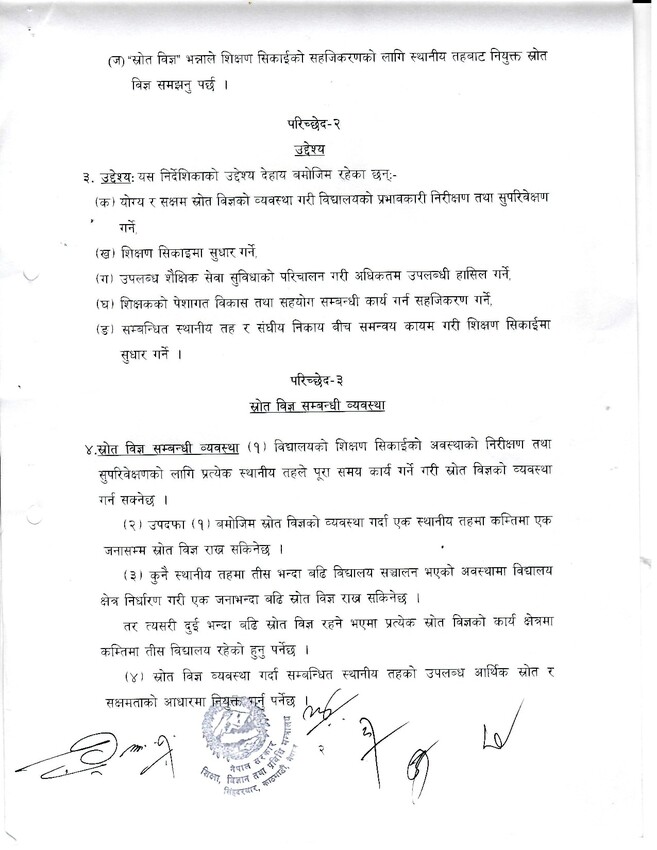 (ज)"स्रोत विज्ञ" भन्नाले शिक्षण सिकाईको सहजिकरणको लागि स्थानीय तहवाट नियुक्त स्रोत
विज्ञ समझनु पर्छ ।
परिच्छेद-२
उद्देश्य
३. उद्देश्यः यस निर्देशिकाको उद्देश्य देहाय बमोजिम रहेका छन्:-
(क) योग्य र सक्षम स्रोत विज्ञको व्यवस्था गरी विद्यालयको प्रभावकारी निरीक्षण तथा सुपरिवेक्षण
गर्ने,
(ख) शिक्षण सिकाइमा सुधार गर्ने,
(ग) उपलब्ध शैक्षिक सेवा सुविधाको परिचालन गरी अधिकतम उपलब्धी हासिल गर्ने,
(घ) शिक्षकको पेशागत विकास तथा सहयोग सम्बन्धी कार्य गर्न सहजिकरण गर्ने,
(ङ) सम्बन्धित स्थानीय तह र संघीय निकाय वीच समन्वय कायम गरी शिक्षण सिकाईमा
सुधार गर्ने ।
परिच्छेद-३
स्रोत विज्ञ सम्बन्धी व्यवस्था
४.स्रोत विज्ञ सम्बन्धी व्यवस्था (१) विद्यालयको शिक्षण सिकाईको अवस्थाको निरीक्षण तथा
सुपरिवेक्षणको लागि प्रत्येक स्थानीय तहले पूरा समय कार्य गर्ने गरी स्रोत विज्ञको व्यवस्था
गर्न सक्नेछ ।
(२) उपदफा (१) बमोजिम स्रोत विज्ञको व्यवस्था गर्दा एक स्थानीय तहमा कम्तिमा एक
जनासम्म स्रोत विज्ञ राख्न सकिनेछ ।
(३) कुनै स्थानीय तहमा तीस भन्दा बढि विद्यालय सञ्चालन भएको अवस्थामा विद्यालय
क्षेत्र निर्धारण गरी एक जनाभन्दा बढि स्रोत विज्ञ राख्न सकिनेछ ।
तर त्यसरी दुई भन्दा बढि स्रोत विज्ञ रहने भएमा प्रत्येक स्रोत विज्ञको कार्य क्षेत्रमा
कम्तिमा तीस विद्यालय रहेको हुनु पर्नेछ ।
(४) स्रोत विज्ञ व्यवस्था गर्दा सम्बन्धित स्थानीय तहको उपलब्ध आर्थिक स्रोत र
सक्षमताको आधारमा नियुक्त गर्नु पर्नेछ ।
२
नेपाल सरकार
शिक्षा, विज्ञान तथा प्रविधि मन्त्रालय
सिंहदरबार, काठमाडौं, नेपाल